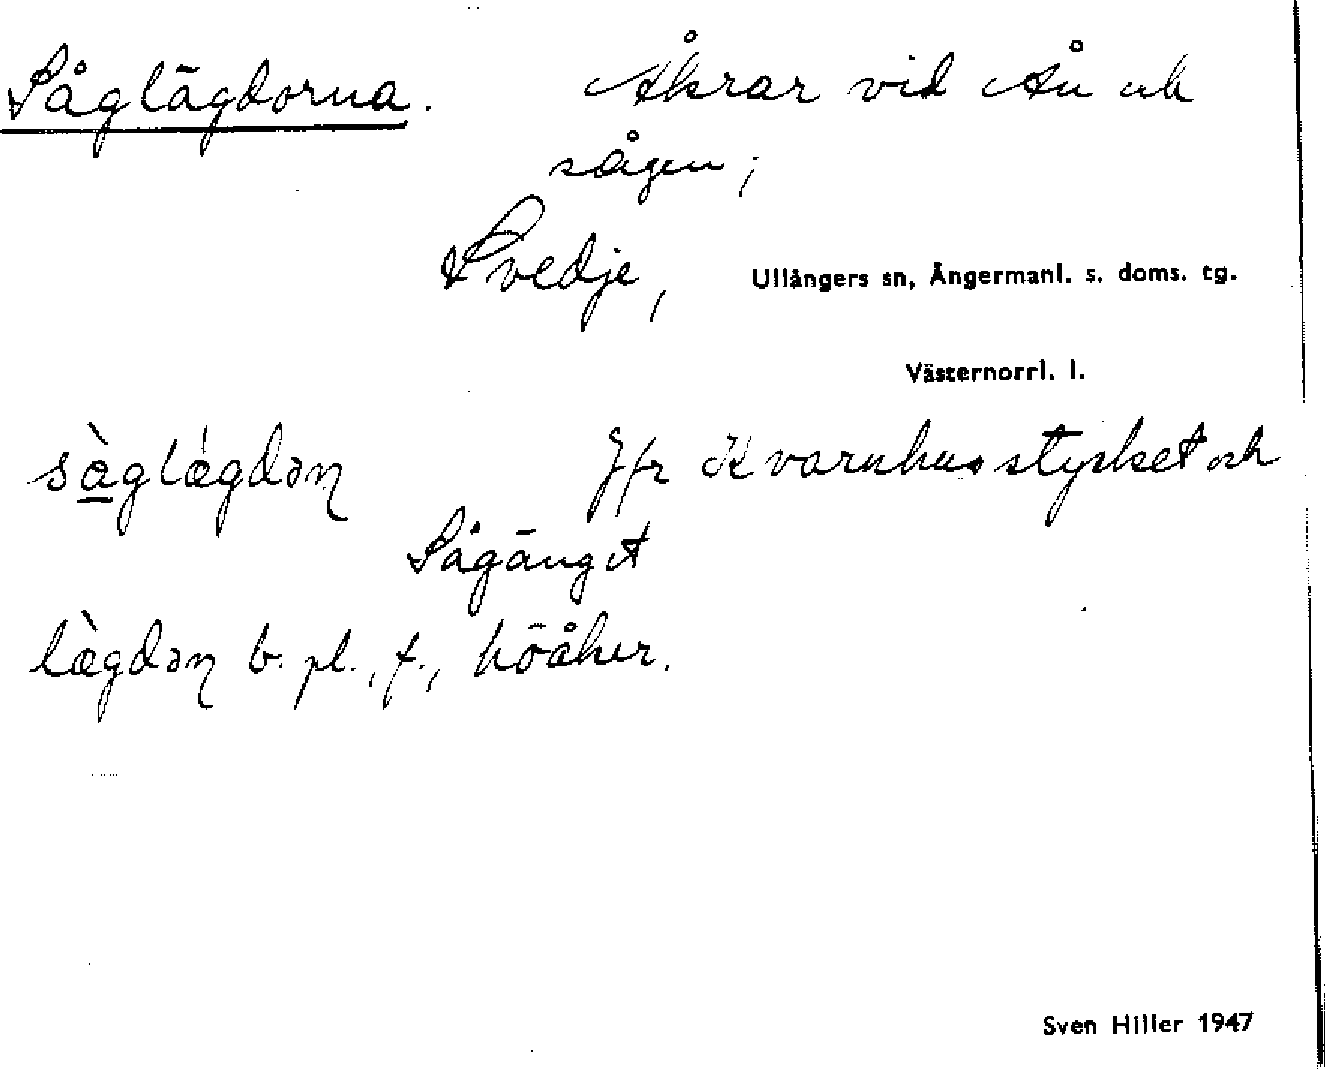 Såglägdorna. Åkrar vid Ån och
sågen;
Svedje, Ullångers sn, Ångermanl. s. doms. tg.
Västernorrl. l.
sàglǽgdəɳ Jfr Kvarnhusstycket och
Sågänget
læ̀gdəɳ b. pl., f., höåker.
Sven Hiller 1947